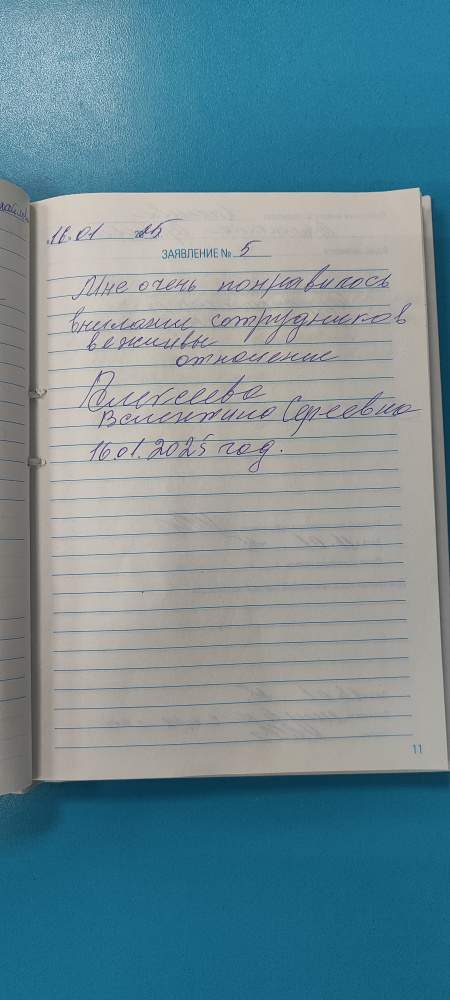 16.01 2025
ЗАЯВЛЕНИЕ № 5
Мне очень понравилось
внимании сотрудников
вежливы
отношение
Алексеева
Валентина Сергеевна
16.01.2025 год.
11